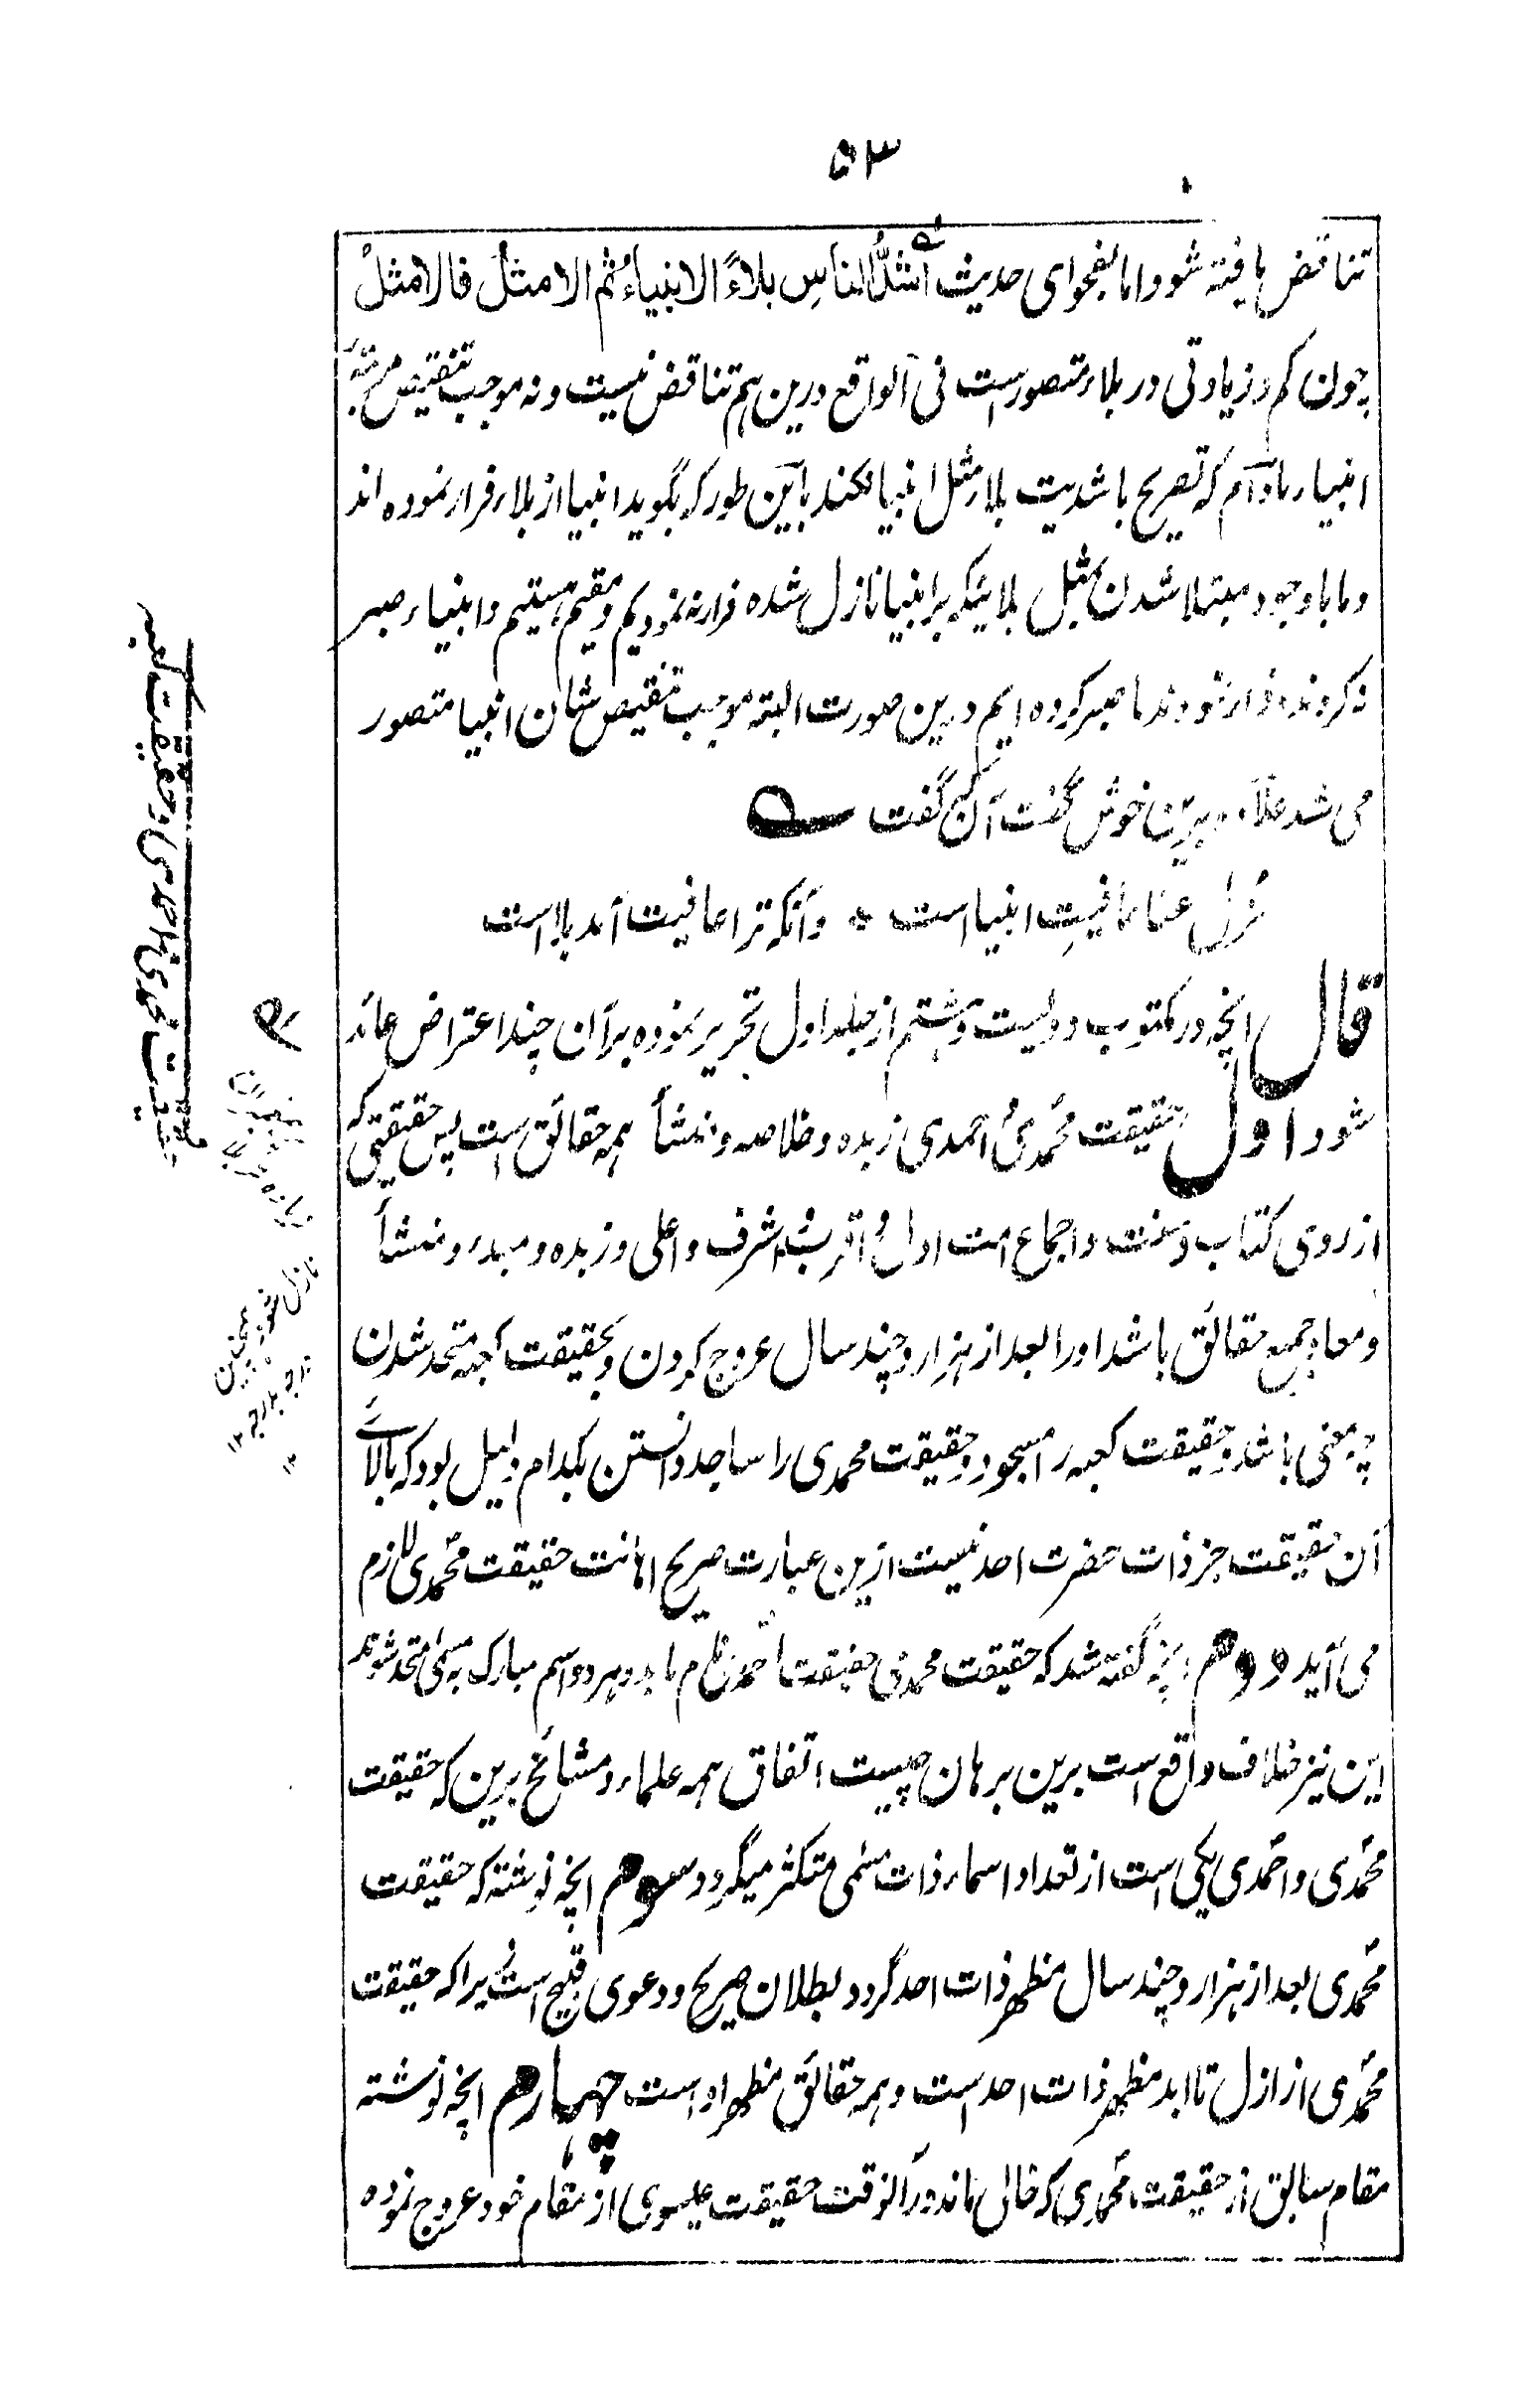 ۵۳
تناقض یافته شود اما بفحوای حدیث اشدُّ الناسِ بلاءً الانبیاءُ ثم الامثلُ فالامثلُ
چون کم و زیادتی در بلاء متصور است فی الواقع درین هم تناقض نیست و نه موجب تنقیص مرتبهٔ
انبیاء مادام که تصریح باشدیت بلاء مثل انبیا نکند باین طور که بگوید انبیا از بلاء فرار نموده اند
و ما با وجود مبتلا شدن بمثل بلائیکه بر انبیا نازل شده فرار نه نمودیم و مقیم هستیم و انبیاء صبر
نه کردند و فرار نمودند ما صبر کرده ایم درین صورت البته موجب تنقیص شان انبیا متصور
می شد خوش گفت آن که گفت
عنا عافیتِ انبیا است * وآنکه ترا عافیت آمد بلا است
قال انچه در مکتوب دو لیست و هشتم از جلد اول تحریر نموده بر آن چند اعتراض عائد
شود اول حقیقت محمدی احمدی زبده و خلاصه و منشأ همه حقائق است پس حقیقتی که
از روی کتاب و سنت و اجماع امت اول و اقرب و اشرف و اعلی و زبده و مبدء و منشأ
و معاد جمیع حقائق باشد او را بعد از هزار و چند سال عروج کردن و بحقیقت کعبه متحد شدن
چه معنی باشد و حقیقت کعبه را مسجود و حقیقت محمدی را ساجد دانستن بکدام دلیل بود که بالائے
آن حقیقت جز ذات حضرت احد نیست ازین عبارت صریح اهانت حقیقت محمدی لازم
می آید دوم انچه گفته شد که حقیقت محمدی حقیقت احمدی نام یابد و هر دو اسم مبارک به مسمی متحد شوند
این نیز خلاف واقع است برین برهان چیست اتفاق همه علماء و مشائخ برین که حقیقت
محمدی و احمدی یکی است از تعداد اسماء ذات مسمی متکثر میگردد سوم انچه نوشته که حقیقت
محمدی بعد از هزار و چند سال مظهر ذات احد گردد بطلان صریح و دعوی قبیح است زیرا که حقیقت
محمدی از ازل تا ابد مظهر ذات احد است و همه حقائق مظهر او است چهارم انچه نوشته
مقام سابق از حقیقت محمدی که خالی ماند و در آنوقت حقیقت عیسوی از مقام خود عروج نموده
حقیقت محمدی و احمدی و حقیقت کعبه
نازل شود همچنین
درجه بدرجه ۱۲